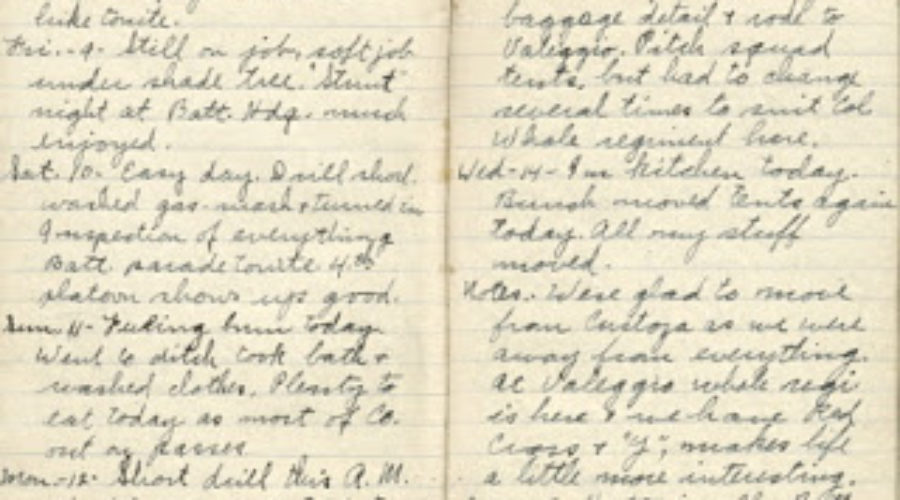 like tonite.
Fri. - 9- Still on job, soft job
under shade tree. "Stunt"
night at Batt. Hdq. much
enjoyed.
Sat. 10- Easy day. Drill short.
washed gas-mask & turned in
Inspection of everything
Batt. parade tonite 4th
platoon shows up good.
Sun 11- Feeling bum today.
Went to ditch took bath &
washed clothes. Plenty to
eat today as most of Co.
out on passes
Mon.-12- Short drill this A.M.
baggage detail & rode to
Valeggio. Pitch squad
tents, but had to change
several times to suit Col
Whole regiment here.
Wed-14- I'm kitchen today.
Bunch moved tents again
today. All my stuff
moved.
Notes. Were glad to move
from Custoza as we were
away from everything.
At Valeggio whole regi
is here & we have Red
Cross & "Y", makes life
a little more interesting.